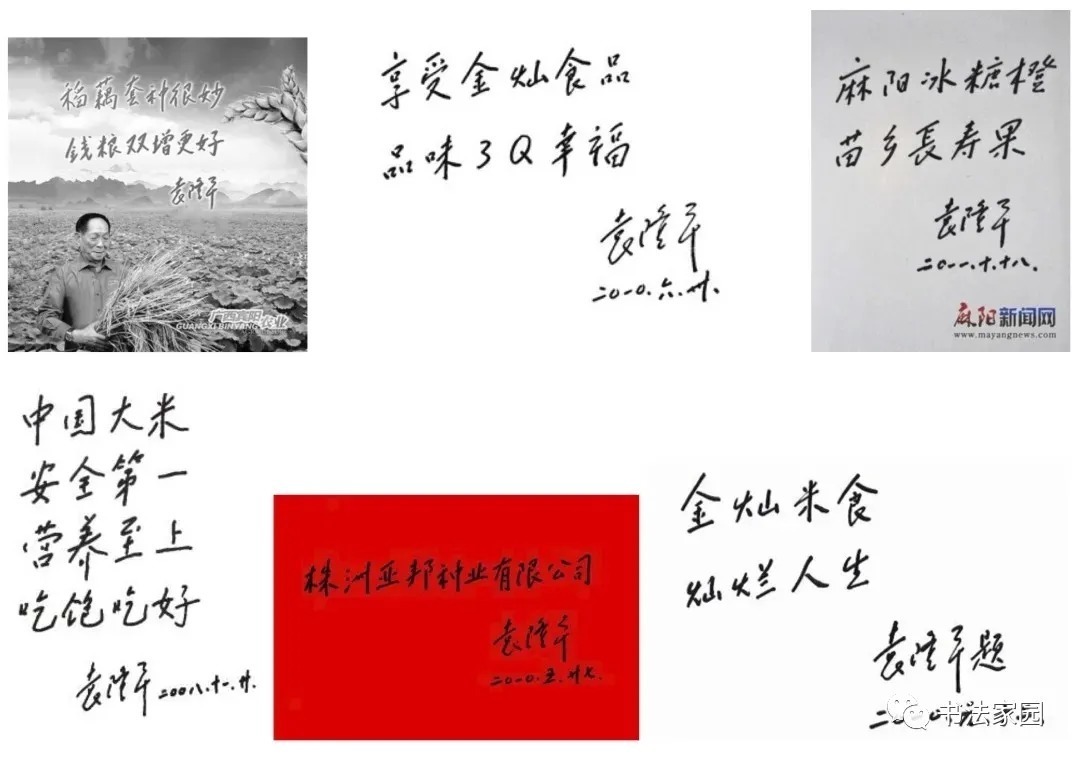 稻藕套种很妙
钱粮双增更好
袁隆平
广西宾阳农业
GUANGXI BINYANG
享受金灿食品
品味3Q幸福
袁隆平
二〇一〇.六.廿.
麻阳冰糖橙
苗乡長寿果
袁隆平
二〇一一.十.十八.
麻阳新闻网
www.mayangnews.com
中国大米
安全第一
营养至上
吃饱吃好
袁隆平二〇〇八.十一.廿.
株洲亚邦种业有限公司
袁隆平
二〇一〇.五.廿七.
金灿米食
灿烂人生
袁隆平题
书法家园